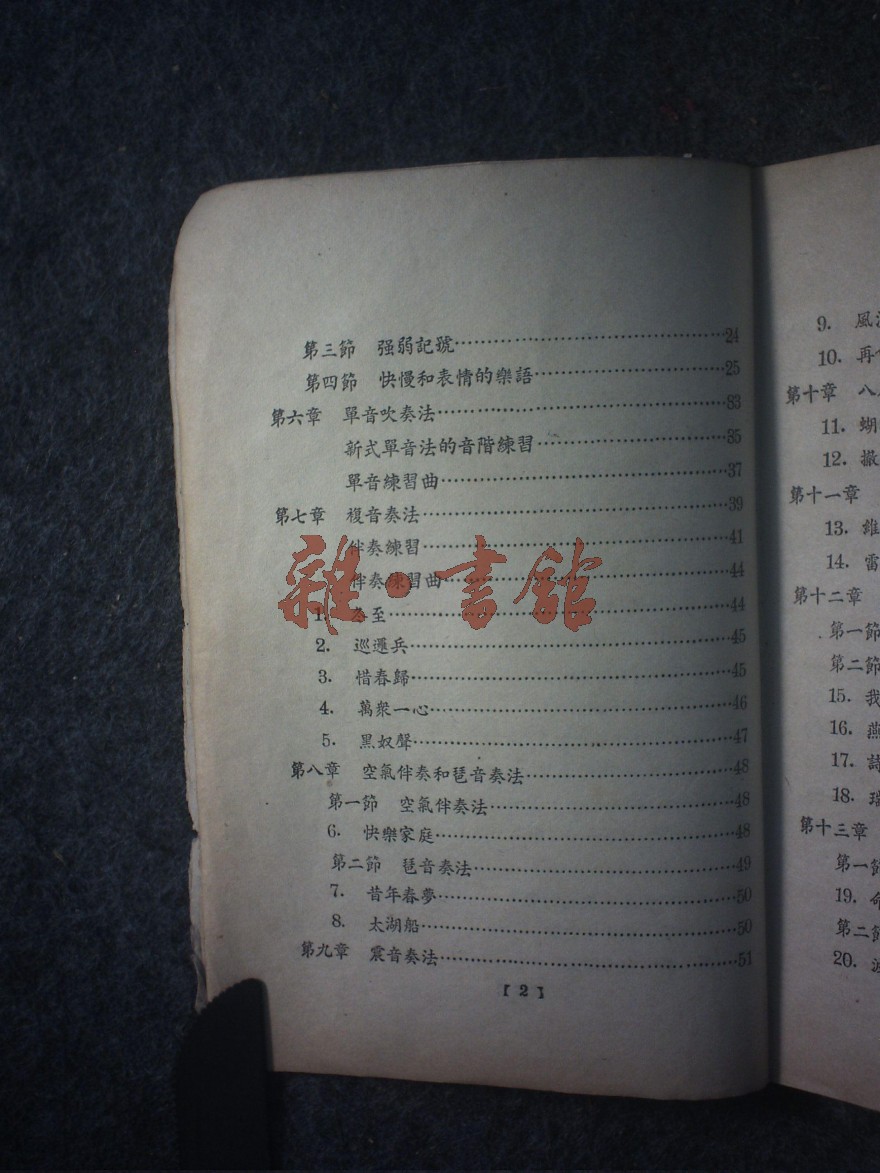 第三節 强弱記號……24
第四節 快慢和表情的樂語……25
第六章 單音吹奏法……33
新式單音法的音階練習……35
單音練習曲……37
第七章 複音奏法……39
伴奏練習……41
伴奏練習曲……44
1. 至……44
2. 巡邏兵……45
3. 惜春歸……45
4. 萬衆一心……46
5. 黑奴聲……47
第八章 空氣伴奏和琶音奏法……48
第一節 空氣伴奏法……48
6. 快樂家庭……48
第二節 琶音奏法……49
7. 昔年春夢……50
8. 太湖船……50
第九章 震音奏法……51
【2】
雜·書館
9. 風
10. 再
第十章 八
11. 蝴
12. 撤
第十一章
13.
14. 雷
第十二章
第一節
第二節
15. 我
16. 燕
17. 詩
18. 瑞
第十三章
第一節
19. 命
第二節
20.